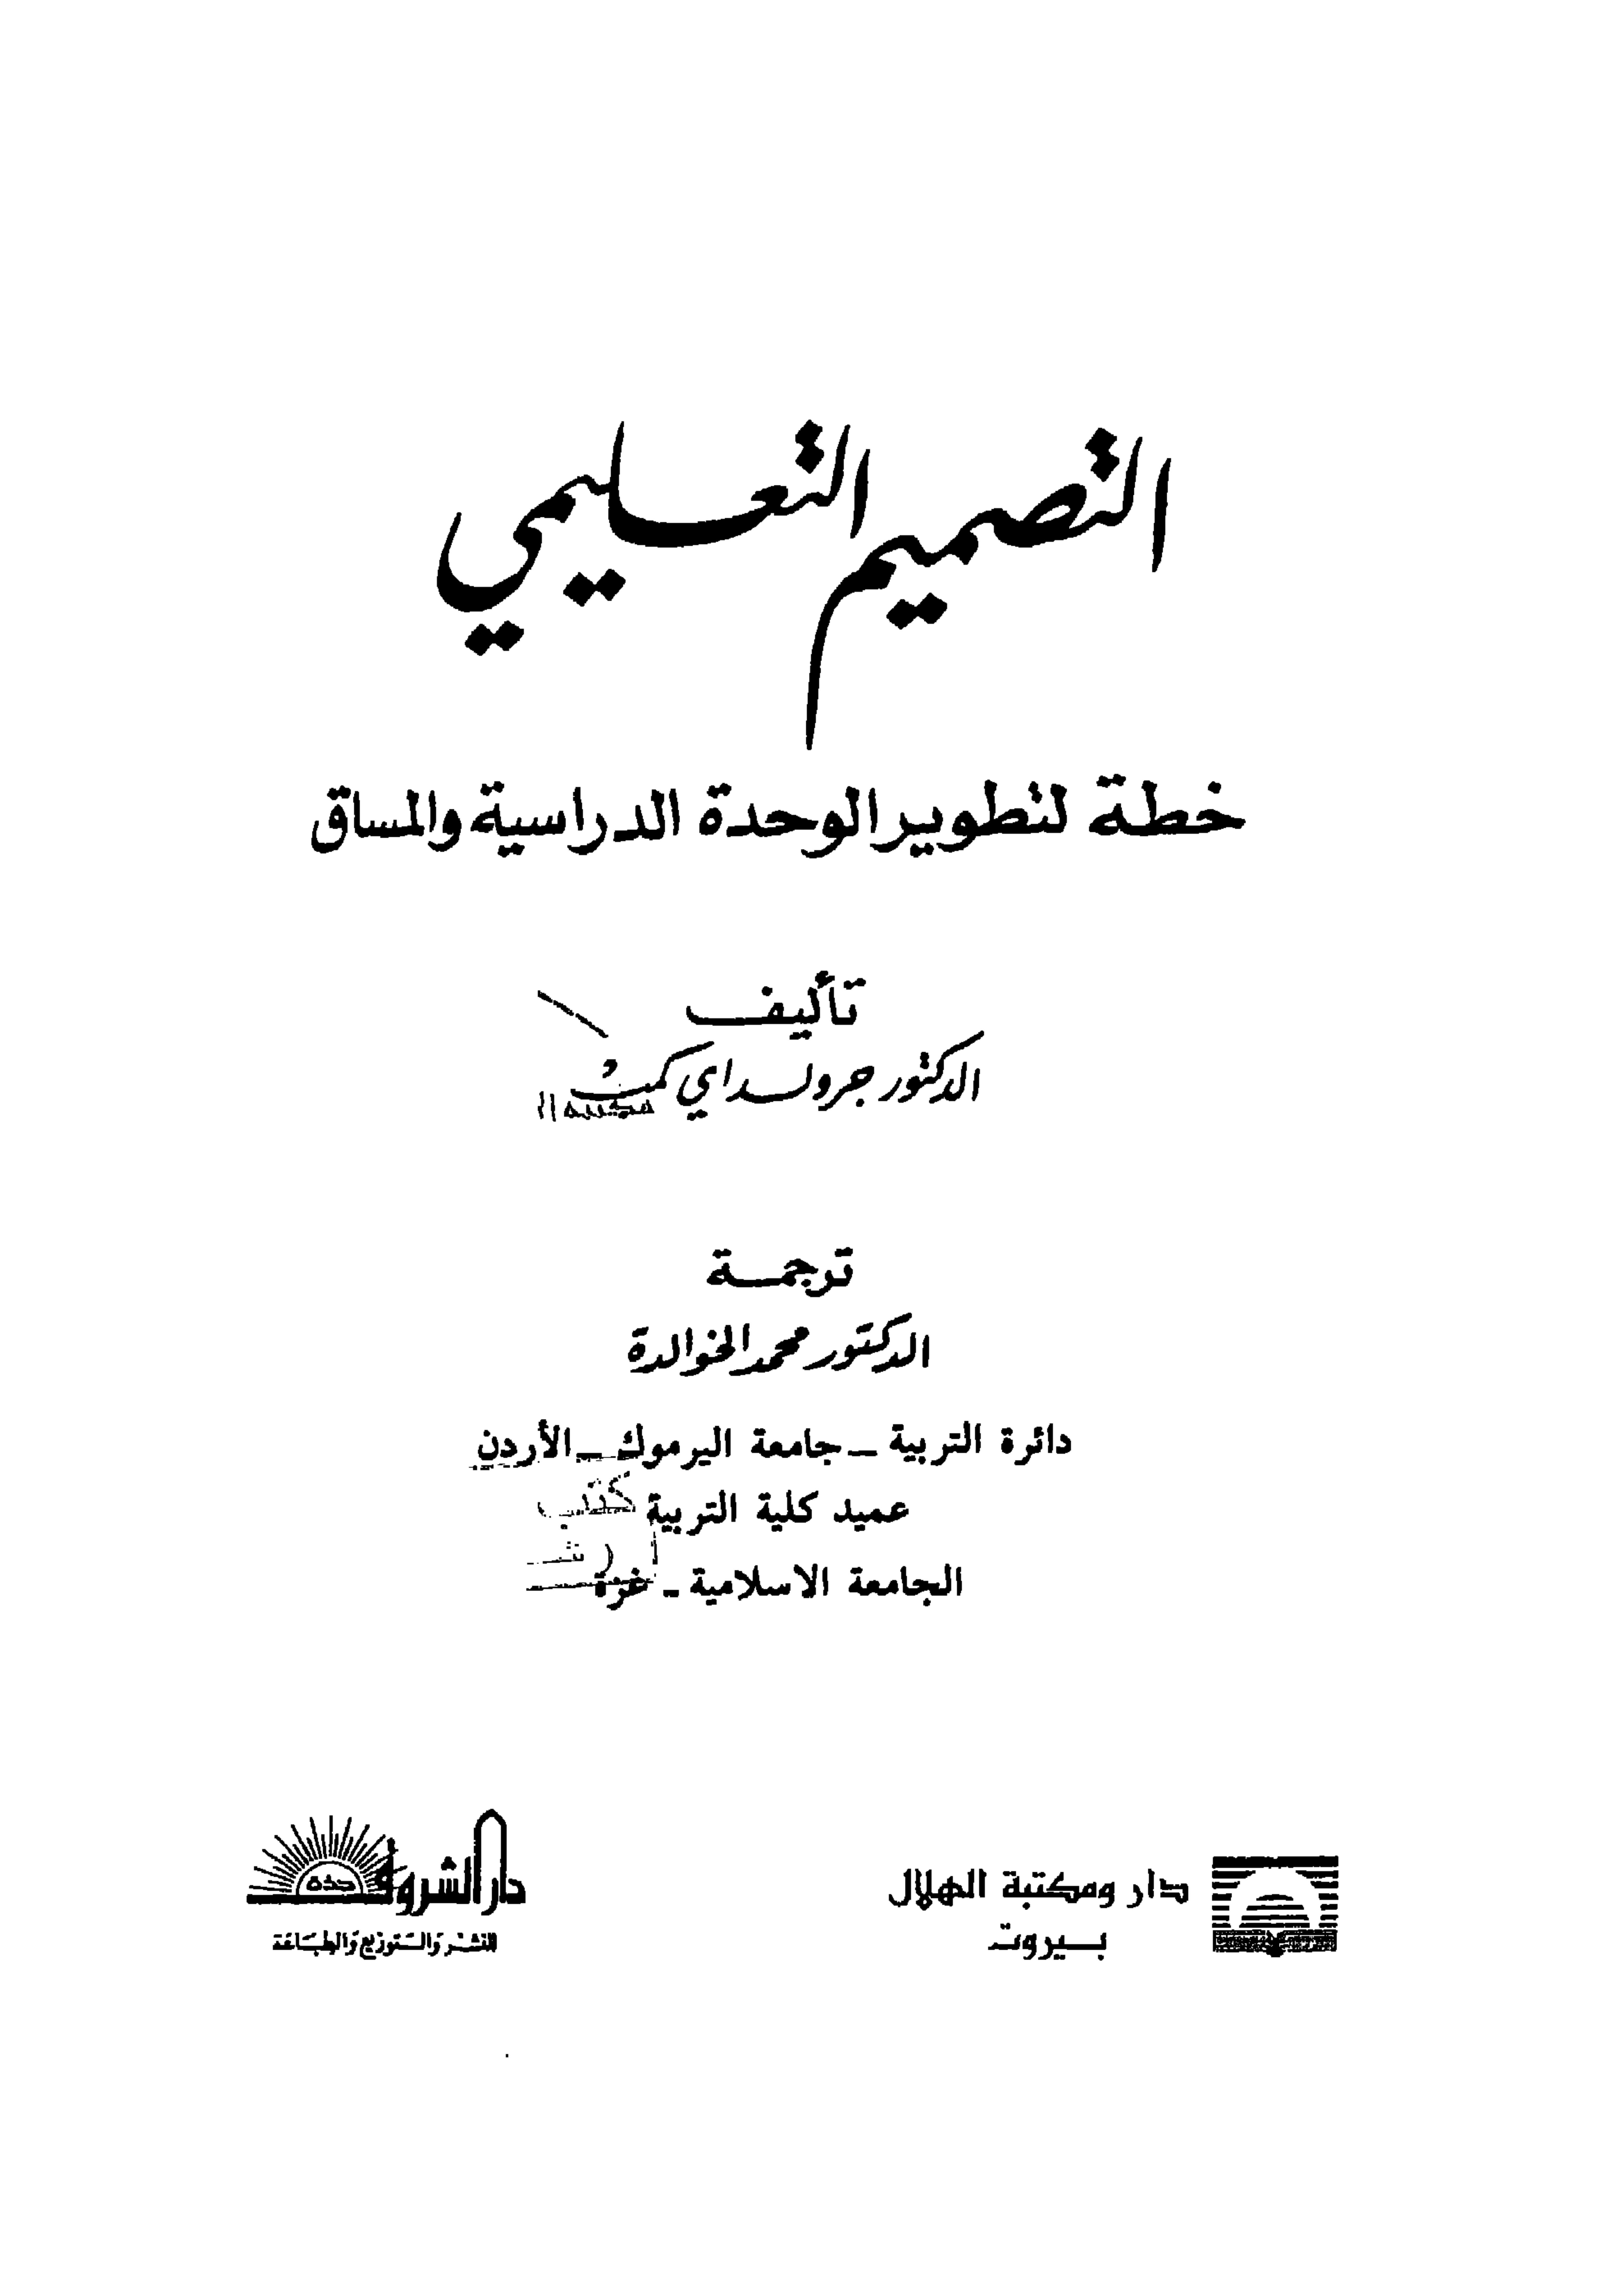 التصميم التعليمي
خطة لتطوير الوحدة الدراسية والمساق
تأليف
الدكتور جرولد اي كمب
ترجمة
الدكتور محمد الخوالدة
دائرة التربية ـ جامعة اليرموك ـ الأردن
عميد كلية التربية
الجامعة الاسلامية ـ غزة
دار ومكتبة الهلال
بيروت
دار الشروق
جدة
للنشر والتوزيع والطباعة